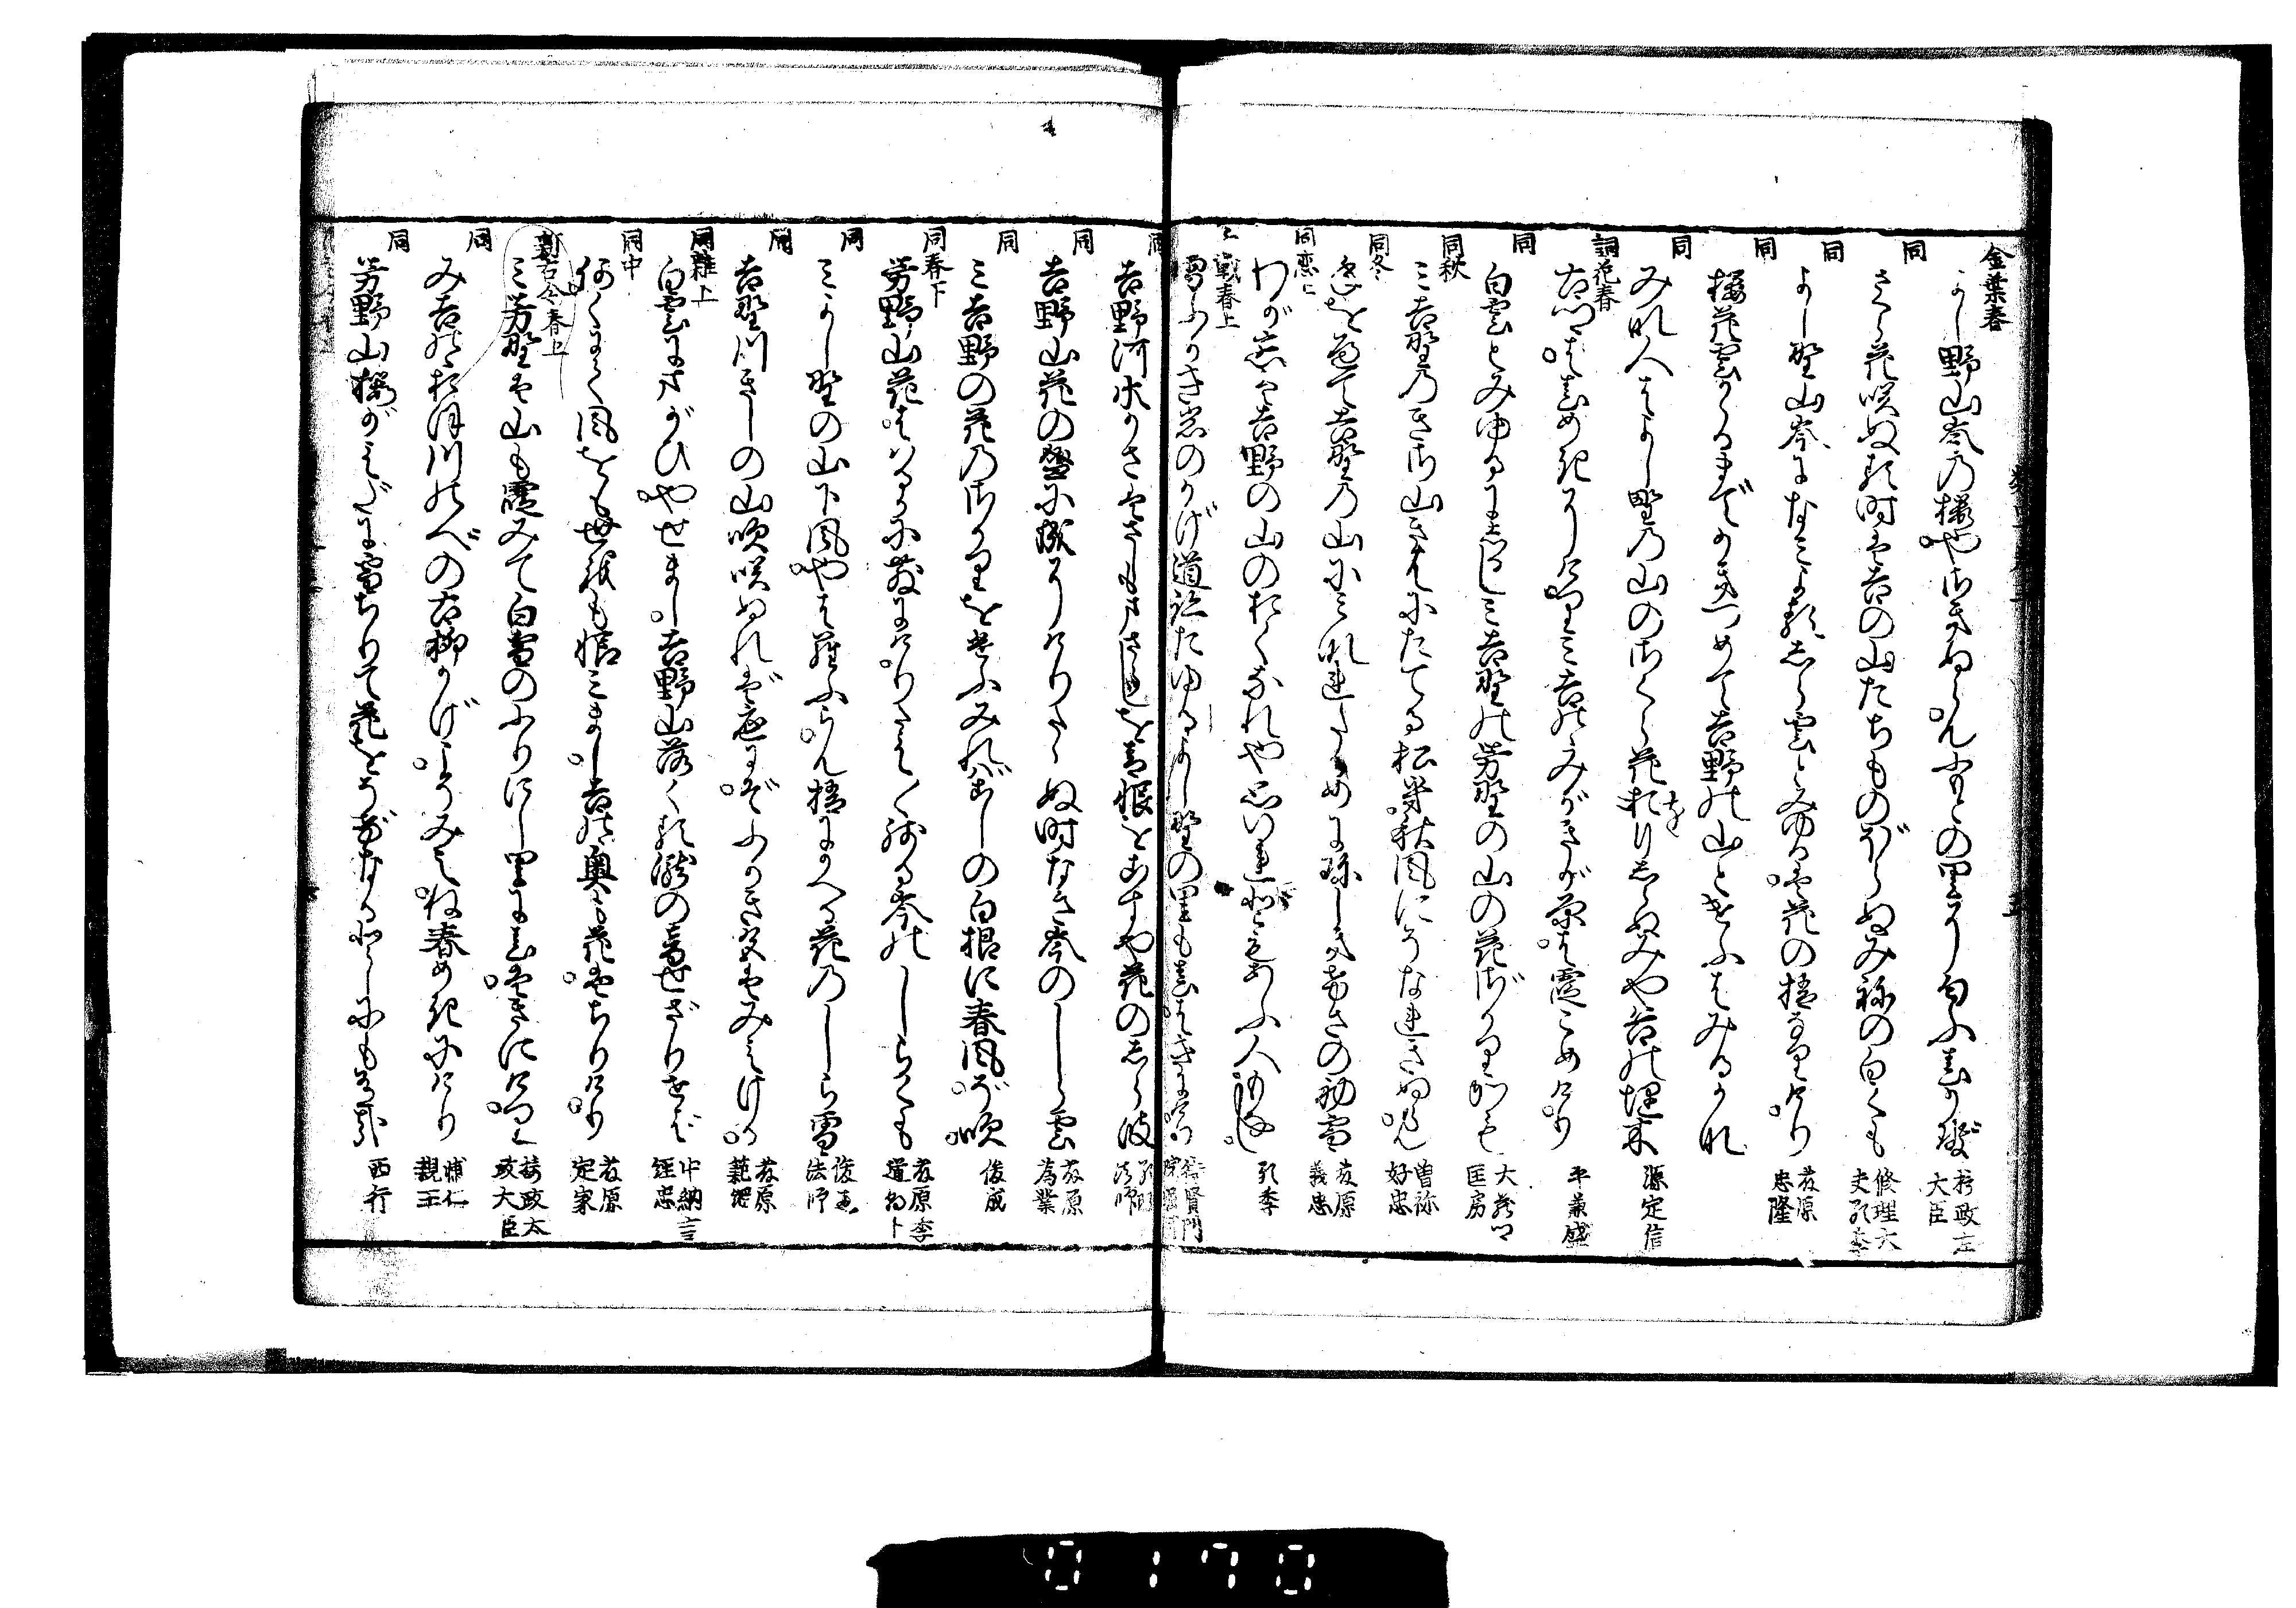 金葉春
よし野山峯の桜やさきぬらんふもとの里にゝほふ春かぜ
摂政左大臣
同
さくら花咲ぬる時は吉の山たちものぼらぬみねの白くも
修理大夫顕季
同
よし野山岑になみよる白雲とみゆるは花の梢なりけり
藤原忠隆
同
桜花雲かゝるまでかきつめて吉野の山とけふはみるかな
同
みな人はよし野の山のさくら花おりしらぬみや谷の埋木
源定信
詞花春
古郷は春めきにけりみ吉のゝみかきが原は霞こめけり
平兼盛
同
白雲とみゆるにしるしみ吉野の芳野の山の花ざかりかも
大蔵卿匡房
同秋
み吉野のきさ山ぎはにたてる松幾秋風にそなれきぬらん
曽祢好忠
同冬
年を<br>へて吉野の山にみなれたるめに珍しきけさの初雪
藤原義忠
同恋上
わが恋は吉野の山のおくなれや思ひ入れどもあふ人もなし
顕季
千載春上
雪ふかき岩のかげ道跡たゆるよし野の里も春はきにけり
待賢門院堀河
同
吉野河水かさはさしもまさらじを青根をこすや花のしら波
顕昭法師
同
吉野山花の盛に成にけりたゝぬ時なき岑のしら雲
藤原為業
同
み吉野の花のさかりをけふみればこしの白根に春風ぞ吹
俊成
同春下
芳野山花はなかばに散にけりたえ〳〵残る岑のしらくも
藤原季通
同
みよし野の山下風やはらふらん梢にかへる花のしら雪
俊恵法師
同
吉野川きしの山吹咲ぬれば底にぞふかき色はみえける
藤原範綱
同雑上
白雲にまがひやせまし吉野山落くる滝の音せざりせば
中納言経忠
同中
何となく風をも世をも恨みまし吉の奥も花はちりけり
藤原定家
新古今春上
み芳野は山も霞みて白雪のふりにし里に春はきにけり
摂政太政大臣
同
み吉のゝ大川のべの古柳かげこそみえね春めきにけり
輔仁親王
同
芳野山桜がえだに雪ちりて花をそげなるとしにもある哉
西行